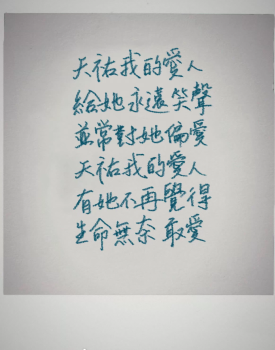 天祐我的愛人
給她永遠笑聲
並常對她偏愛
天祐我的愛人
有她不再覺得
生命無奈 敢愛